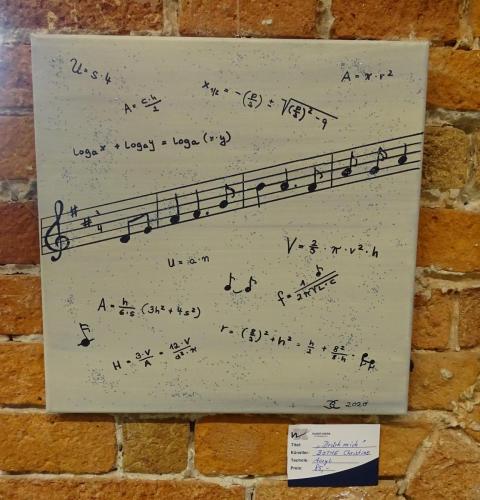 U = s · 4
A = π · r²
x₁/₂ = -(p/2) ± √(p/2)² - q
A = c·h/2
logₐ x + logₐ y = logₐ (x · y)
4
u = a · n
V = 2/3 · π · r² · h
f = 1/2π√L·C
A = h/6·s (3h² + 4s²)
r = (s/2)² + h² = h/2 + s²/8·h
H = 3·V/A = 12·V/d²·π
2020
Titel:
Künstler: BOTHE Christine
Technik: Acryl
Preis: